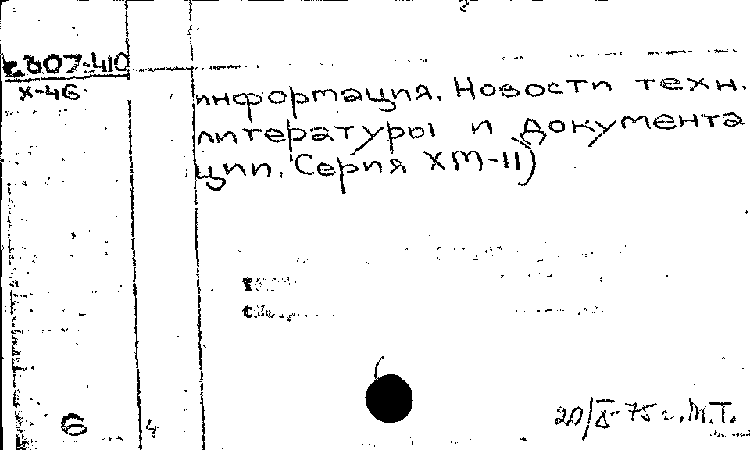 2807-410
X-46
информация. Новости техн.
литературы и документа
ции. Серия ХМ-11)
6
4
20/X-75 г. М.Т.